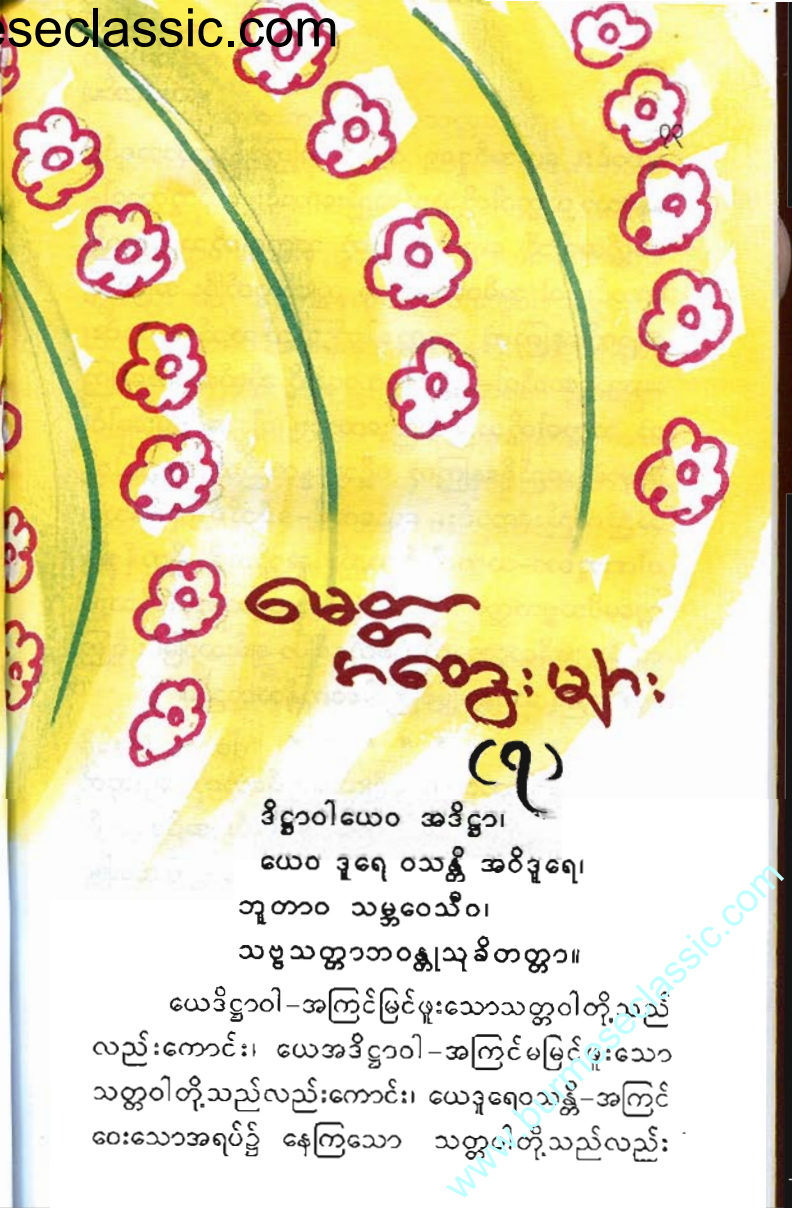 eseclassic.com
၃၃
မေတ္တာ
ဂါထွေးများ
(၇)
ဒိဋ္ဌာဝါယေဝ အဒိဋ္ဌာ၊
ယေဝ ဒူရေ ဝသန္တိ အဝိဒူရေ၊
ဘူတာဝ သမ္ဘဝေသီဝ၊
သဗ္ဗသတ္တာဘဝန္တုသုခိတတ္တာ။
ယေဒိဋ္ဌာဝါ–အကြင်မြင်ဖူးသောသတ္တဝါတို့သည်
လည်းကောင်း၊ ယေအဒိဋ္ဌာဝါ–အကြင်မမြင်ဖူးသော
သတ္တဝါတို့သည်လည်းကောင်း၊ ယေဒူရေဝသန္တိ–အကြင်
ဝေးသောအရပ်၌ နေကြသော သတ္တဝါတို့သည်လည်း
www.burmeseclassic.com